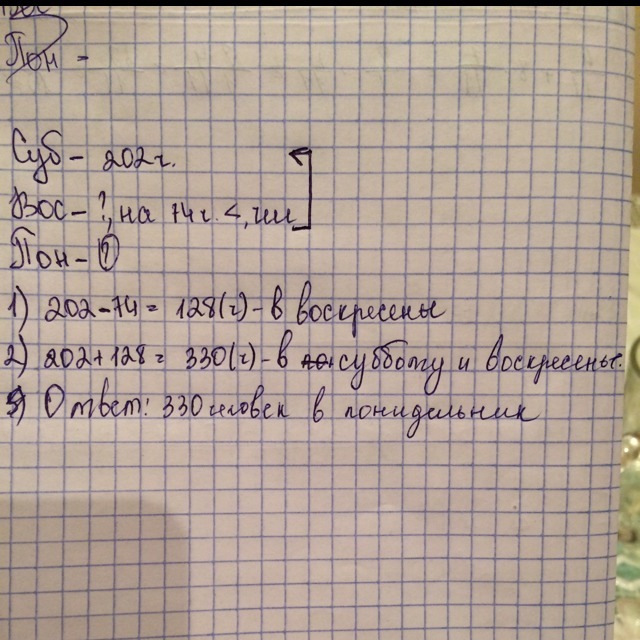 Пон -
Суб - 202 ч.
Вос - ?, на 74 ч. <, чем
Пон - ?
1) 202 - 74 = 128 (ч) - в воскресенье
2) 202 + 128 = 330 (ч) - в субботу и воскресенье.
3) Ответ: 330 человек в понидельник